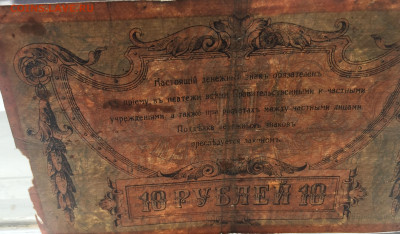 Настоящiй денежный знакъ обязателенъ
къ прiему въ платежи всѣми Правительственными и частными
учрежденiями, а также при расчетахъ между частными лицами
Поддѣлка денежныхъ знаковъ
преслѣдуется закономъ.
10 РУБЛЕЙ 10